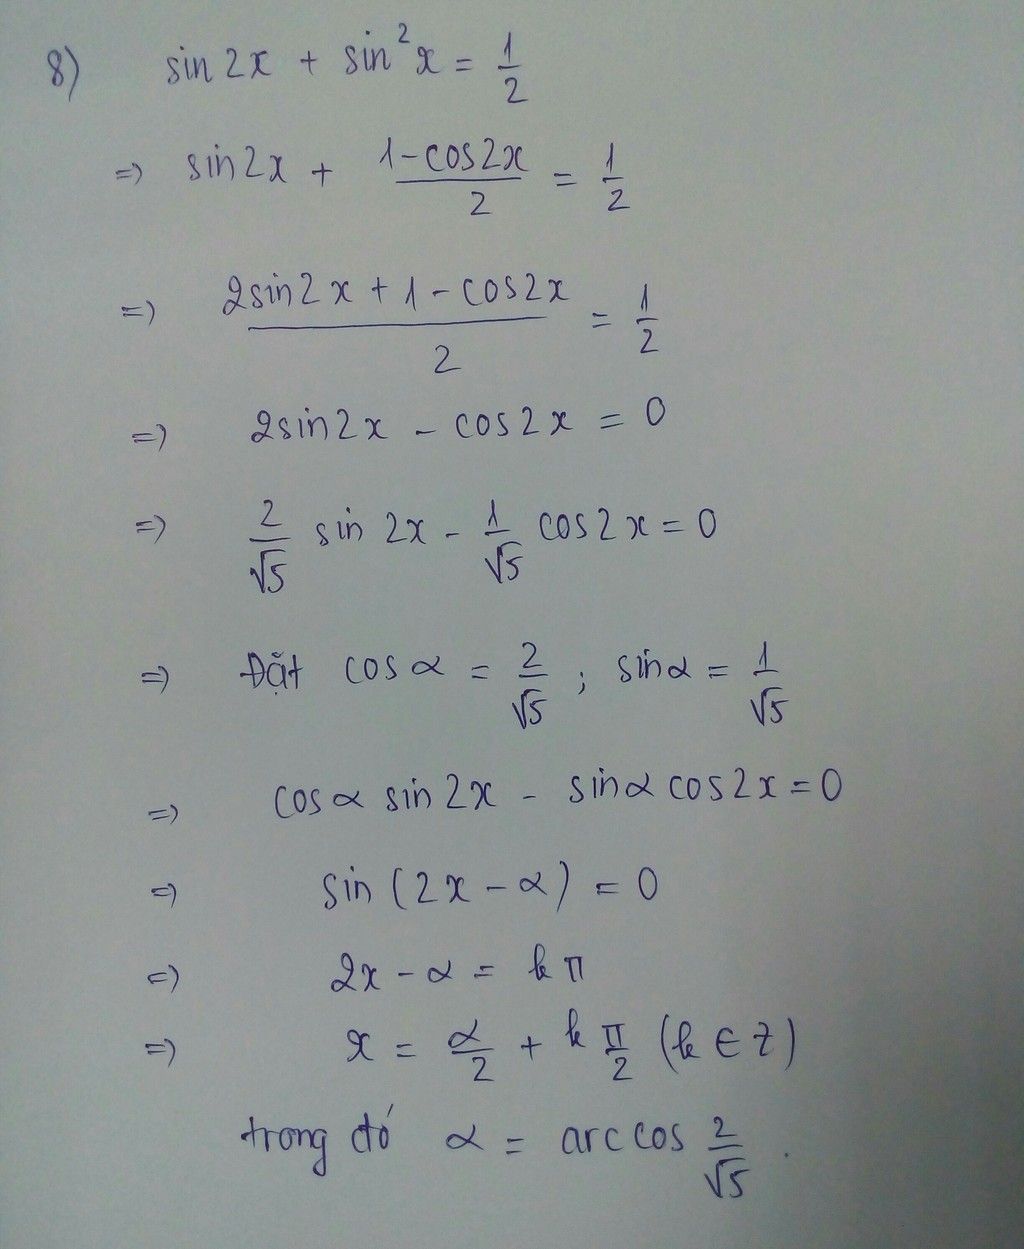 8) sin2x + sin²x = 1/2
=> sin2x + (1-cos2x)/2 = 1/2
=> (2sin2x + 1 - cos2x)/2 = 1/2
=> 2sin2x - cos2x = 0
=> 2/√5 sin 2x - 1/√5 cos2x = 0
=> Đặt cosα = 2/√5 ; sinα = 1/√5
=> cosα sin2x - sinα cos2x = 0
=> sin(2x - α) = 0
=> 2x - α = kπ
=> x = α/2 + k π/2 (k ∈ Z)
trong đó α = arccos 2/√5 .